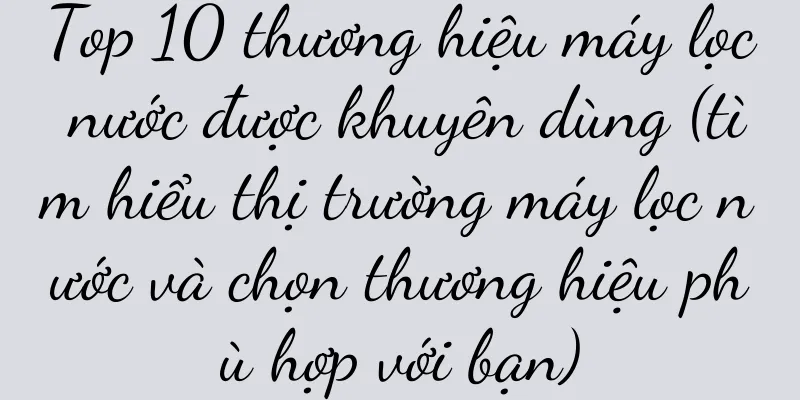 Top 10 thương hiệu máy lọc
nước được khuyên dùng (tì
m hiểu thị trường máy lọc n
ước và chọn thương hiệu ph
ù hợp với bạn)